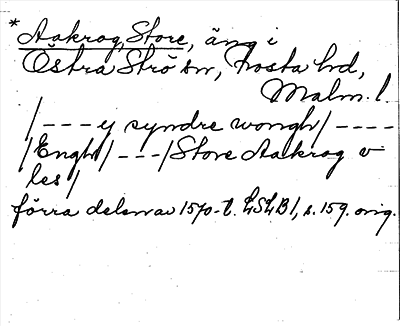 * Aakrog, Store, äng i
Östra Strö sn, Frosta hd,
Malm. l.
/ - - - y syndre wongh / - - - -
/ Engh / - - - / Store Aakrog v
les /
förra delen av 1570-t. LSLB 1, s. 159. orig.